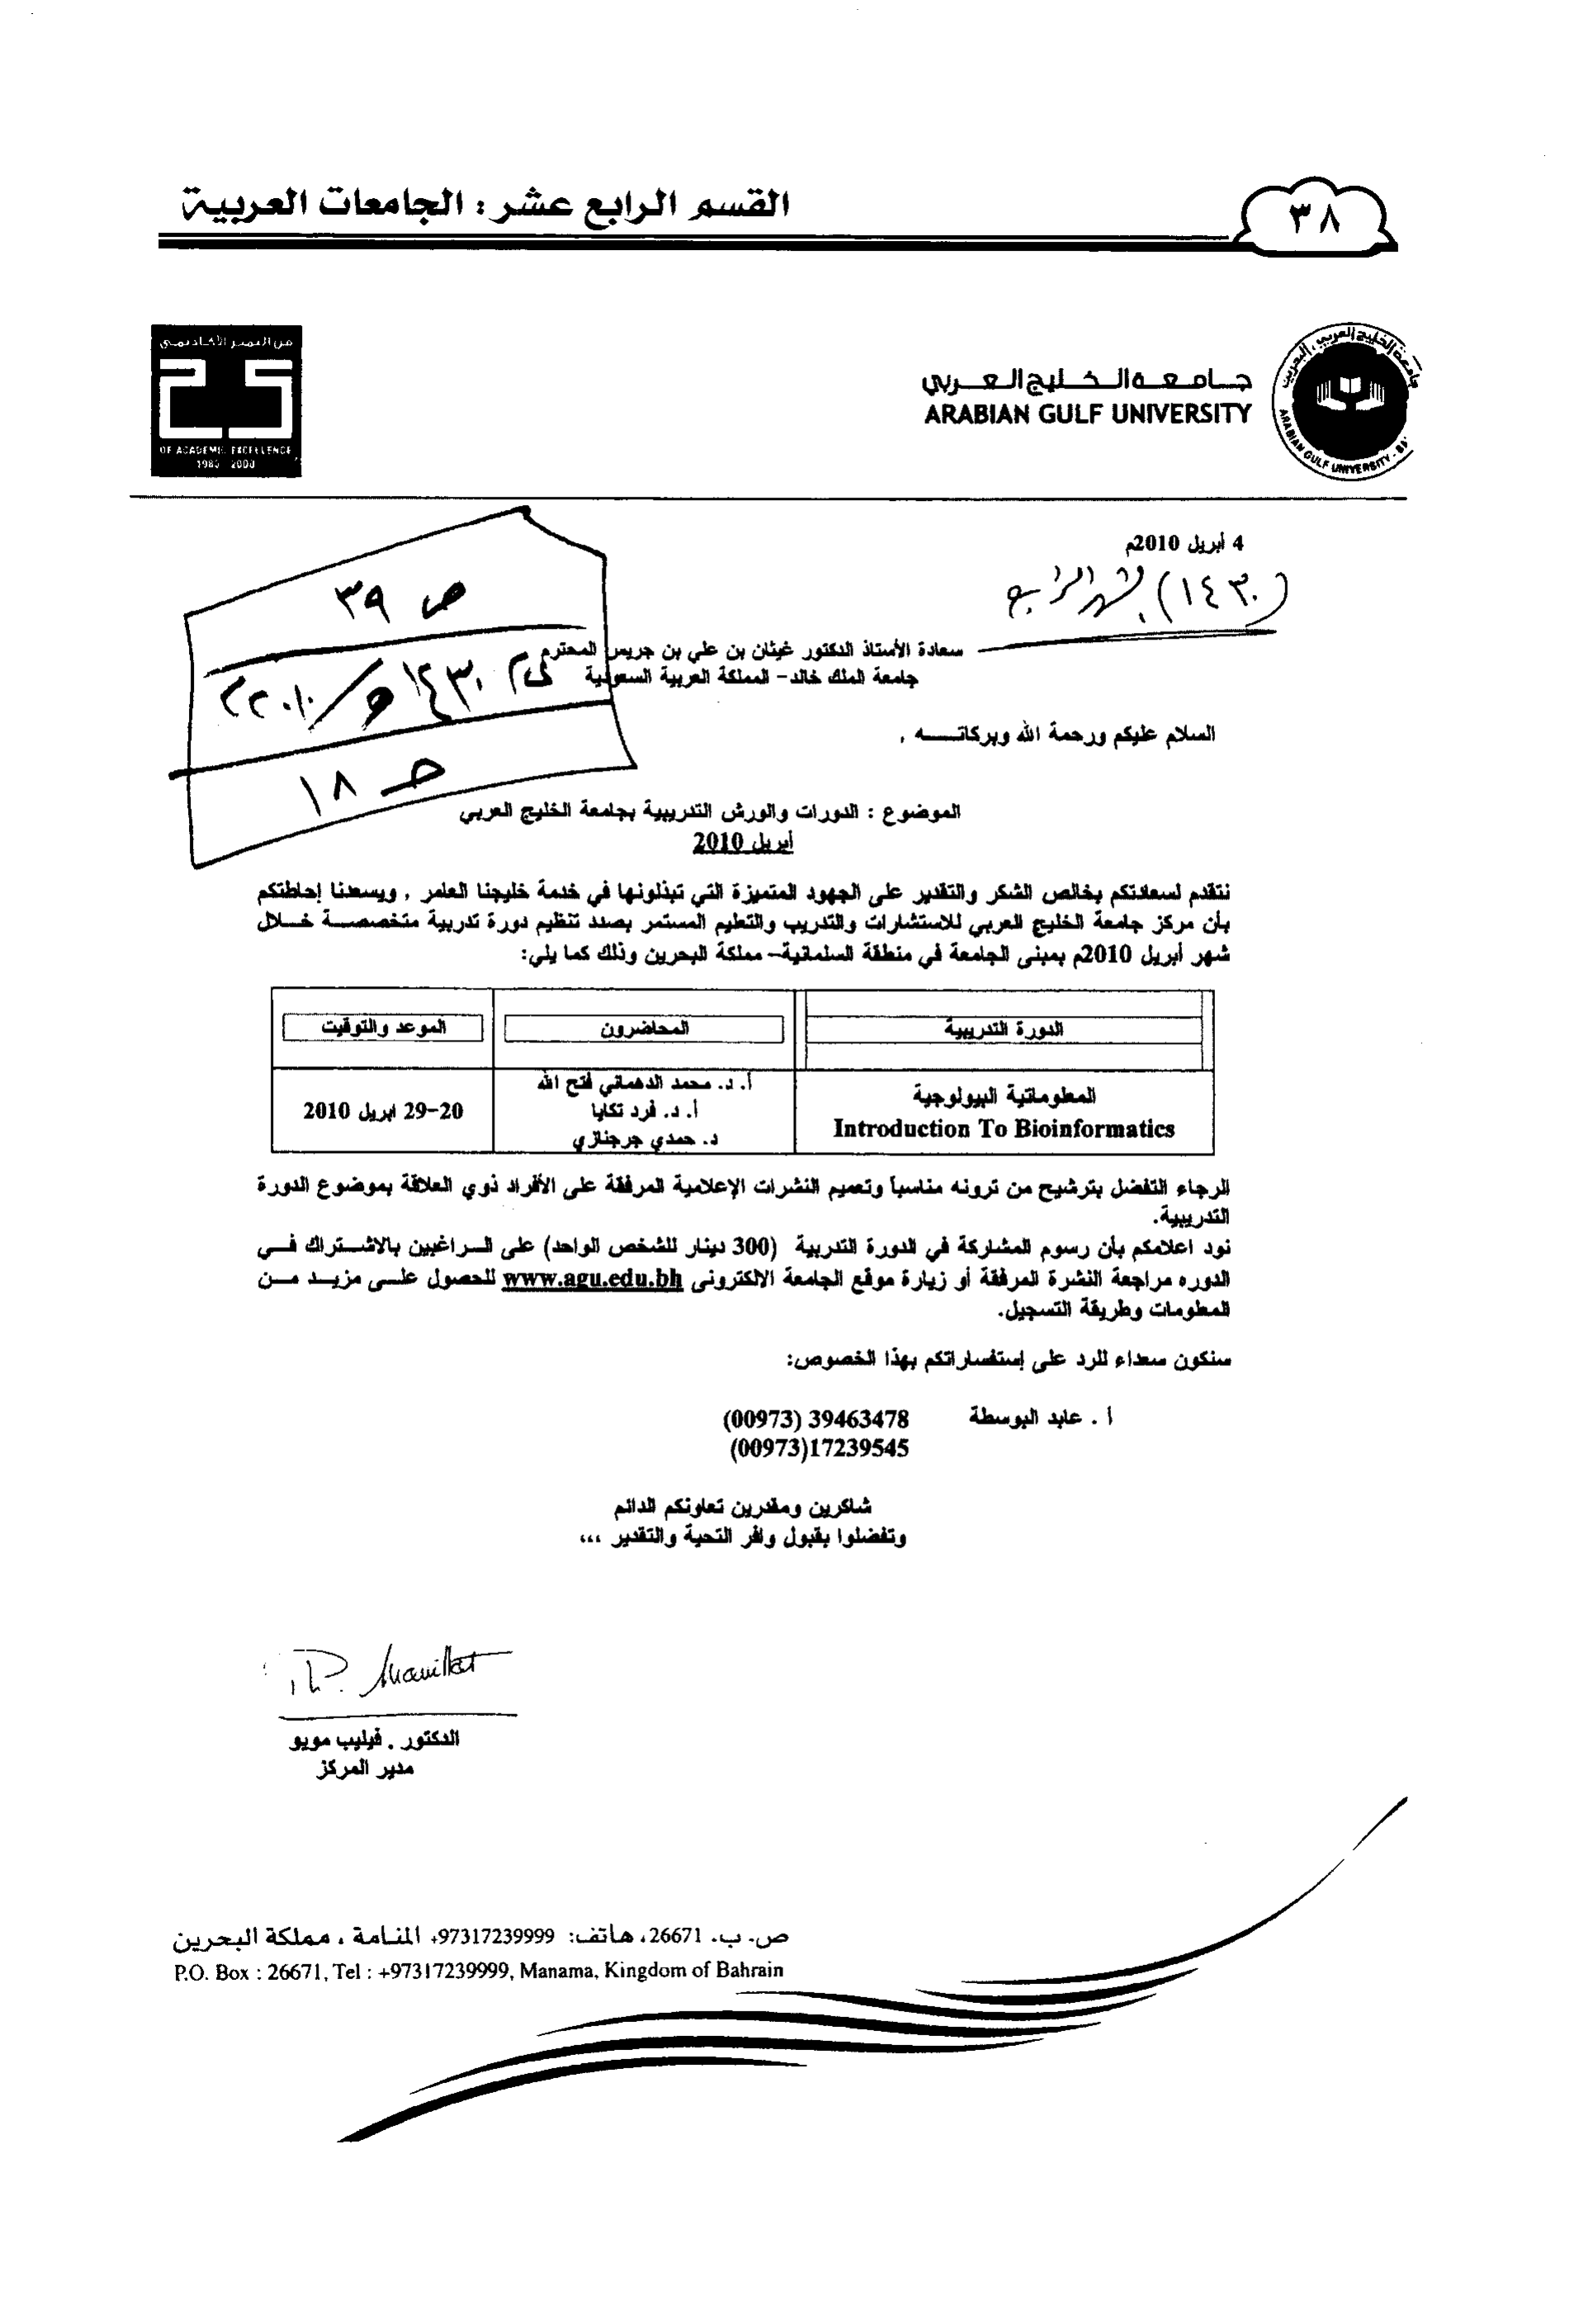 القسم الرابع عشر : الجامعات العربية
٣٨
من التميز الأكاديمي
OF ACADEMIC EXCELLENCE
1980 2000
جامعة الخليج العربي
ARABIAN GULF UNIVERSITY
جامعة الخليج العربي - البحرين
ARABIAN GULF UNIVERSITY
4 أبريل 2010م
(١٤٣٠) الرابع
ص ٣٩
١٤٣٠ / ٢٠١٠
١٨
سعادة الأستاذ الدكتور غيثان بن علي بن جريس المحترم
جامعة الملك خالد- المملكة العربية السعودية
السلام عليكم ورحمة الله وبركاتـــه ,
الموضوع : الدورات والورش التدريبية بجامعة الخليج العربي
أبريل 2010
نتقدم لسعادتكم بخالص الشكر والتقدير على الجهود المتميزة التي تبذلونها في خدمة خليجنا العامر , ويسعدنا إحاطتكم
بأن مركز جامعة الخليج العربي للاستشارات والتدريب والتعليم المستمر بصدد تنظيم دورة تدريبية متخصصة خلال
شهر أبريل 2010م بمبنى الجامعة في منطقة السلمانية- مملكة البحرين وذلك كما يلي:
الدورة التدريبية المحاضرون الموعد والتوقيت
المعلوماتية البيولوجية
Introduction To Bioinformatics
أ. د. محمد الدهماني فتح الله
أ. د. فرد تكايا
د. حمدي جرجنازي
20-29 ابريل 2010
الرجاء التفضل بترشيح من ترونه مناسباً وتعميم النشرات الإعلامية المرفقة على الأفراد ذوي العلاقة بموضوع الدورة
التدريبية.
نود اعلامكم بأن رسوم المشاركة في الدورة التدريبة (300 دينار للشخص الواحد) على الراغبين بالاشتراك في
الدوره مراجعة النشرة المرفقة أو زيارة موقع الجامعة الالكترونى www.agu.edu.bh للحصول على مزيد من
المعلومات وطريقة التسجيل.
سنكون سعداء للرد على إستفساراتكم بهذا الخصوص:
أ . عابد البوسطة (00973) 39463478
(00973)17239545
شاكرين ومقدرين تعاونكم الدائم
وتفضلوا بقبول وافر التحية والتقدير ،،،
الدكتور . فيليب مويو
مدير المركز
ص. ب. 26671، هاتف: 97317239999+ المنامة ، مملكة البحرين
P.O. Box : 26671, Tel : +97317239999, Manama, Kingdom of Bahrain